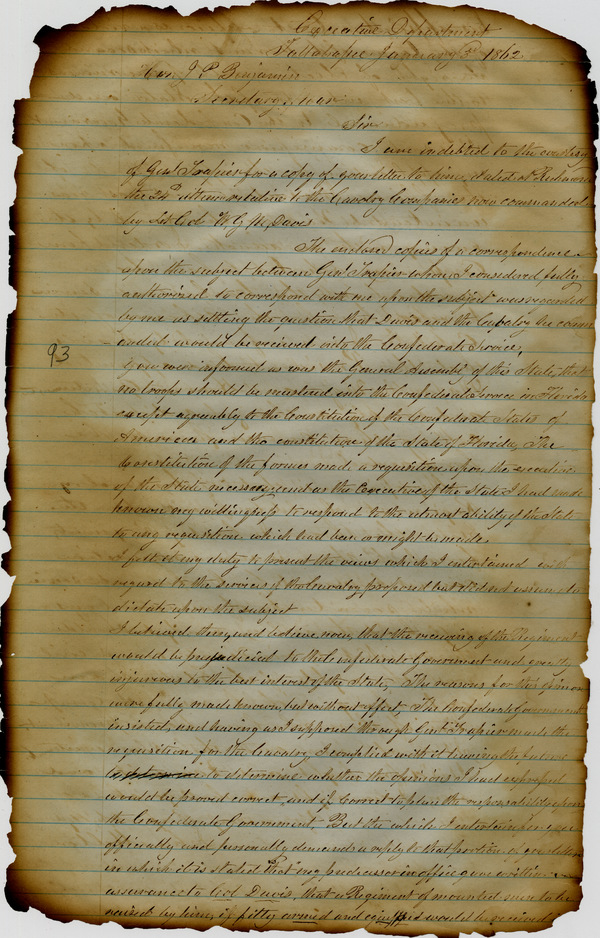 Executive Department
Tallahassee January 3d 1862
Hon J P Benjamin
Secretary War
Sir
I am indebted to the courtesy
of Genl Trapier for a copy of your letter to him, dated at Richmond
the 24th relative to the Cavalry Companies now commanded
by Lt Col W G M Davis
The enclosed copies of a correspondence
upon the subject between Genl Trapier whom I considered fully
authorized to correspond with me upon the subject was regarded
by me as settling the question that Davis and the Cavalry he comm
anded would be received into the Confederate Service,
93
You were informed as was the General Assembly of this State, that
no troops should be mustered into the Confederate Service in Florida
except agreeably to the Constitution of the Confederate States of
America and the constitution of the State of Florida, The
Constitution of the former made a requisition upon the executive
of the State necessary, and as the Executive of the State I had made
known my willingness to respond to the utmost ability of the State
to any requisition which had been or might be made.
I felt it my duty to present the views which I entertained with
regard to the services of the Cavalry proposed but did not assume to
dictate upon the subject
I believed then, and believe now, that the receiving of the Regiment
would be prejudicial to the Confederate Government and even
injurious to the best interest of the State, The reasons for this opinion
were fully made known, but without effect, The Confederate Government
insisted, and having as I supposed through Genl Trapier made the
requisition for the Cavalry I complied with it leaving the future
to determine whether the opinions I had expressed
would be proved correct, and if correct to place the responsibility upon
the Confederate Government, But the which I entertain for you
officially and personally demands a reply to that portion of your letter
in which it is stated that my predecessor in office gave written
assurance to Col Davis, that a Regiment of mounted men to be
raised by him, if fitly armed and equipped would be received